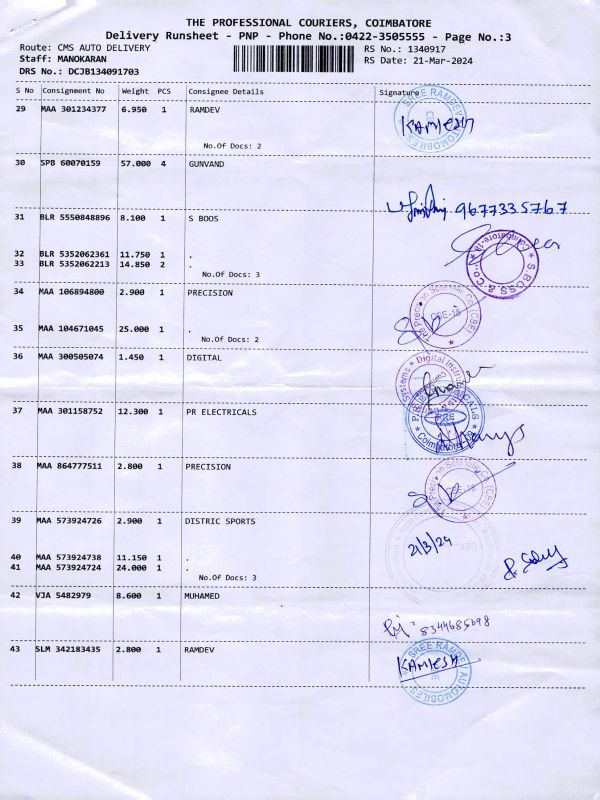 THE PROFESSIONAL COURIERS, COIMBATORE
Delivery Runsheet - PNP - Phone No.:0422-3505555 - Page No.:3
Route: CMS AUTO DELIVERY RS No.: 1340917
Staff: MANOKARAN RS Date: 21-Mar-2024
DRS No.: DCJB134091703
S No Consignment No Weight PCS Consignee Details Signature
29 MAA 301234377 6.950 1 RAMDEV
SREE RAMDEV AUTOMOBILES
KAMLESH
No.Of Docs: 2
30 SPB 60070159 57.000 4 GUNVAND
9677335767
31 BLR 5550848896 8.100 1 S BOOS
S.BOSS & Co. Coimbatore-18
32 BLR 5352062361 11.750 1 .
33 BLR 5352062213 14.850 2 .
No.Of Docs: 3
34 MAA 106894800 2.900 1 PRECISION
The Precision Scientific Co. (CBE)
CBE-18
35 MAA 104671045 25.000 1 .
No.Of Docs: 2
36 MAA 300505074 1.450 1 DIGITAL
Systems * Digital
37 MAA 301158752 12.300 1 PR ELECTRICALS
PRE
Coimbatore
38 MAA 864777511 2.800 1 PRECISION
The Precision Scientific Co. (CBE)
CBE-18
39 MAA 573924726 2.900 1 DISTRIC SPORTS
21/3/24
40 MAA 573924738 11.150 1 .
41 MAA 573924724 24.000 1 .
No.Of Docs: 3
42 VJA 5482979 8.600 1 MUHAMED
8344685698
43 SLM 342183435 2.800 1 RAMDEV
SREE RAMDEV AUTOMOBILES
KAMLESH